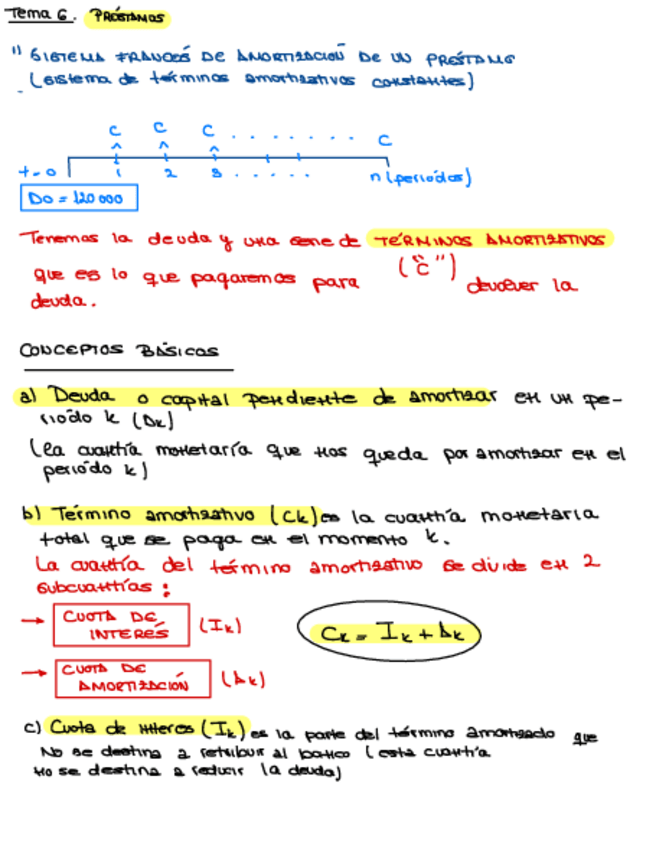 Tema 6. PRÉSTAMOS
1) SISTEMA FRANCÉS DE AMORTIZACIÓN DE UN PRÉSTAMO
(sistema de términos amortizativos constantes)
C C C . . . . . . . . C
t=0 1 2 3 . . . . . n (periodos)
D0 = 120000
Tenemos la deuda y una serie de TÉRMINOS AMORTIZATIVOS
("C")
que es lo que pagaremos para devolver la
deuda.
CONCEPTOS BÁSICOS
a) Deuda o capital pendiente de amortizar en un pe-
riodo k (Dk)
(la cuantía monetaria que nos queda por amortizar en el
periodo k)
b) Término amortizativo (Ck) es la cuantía monetaria
total que se paga en el momento k.
La cuantía del término amortizativo se divide en 2
subcuantías:
→ CUOTA DE INTERÉS (Ik)
Ck = Ik + Ak
→ CUOTA DE AMORTIZACIÓN (Ak)
c) Cuota de interes (Ik) es la parte del término amortizado que
No se destina a retribuir al banco (esta cuantía
no se destina a reducir la deuda)